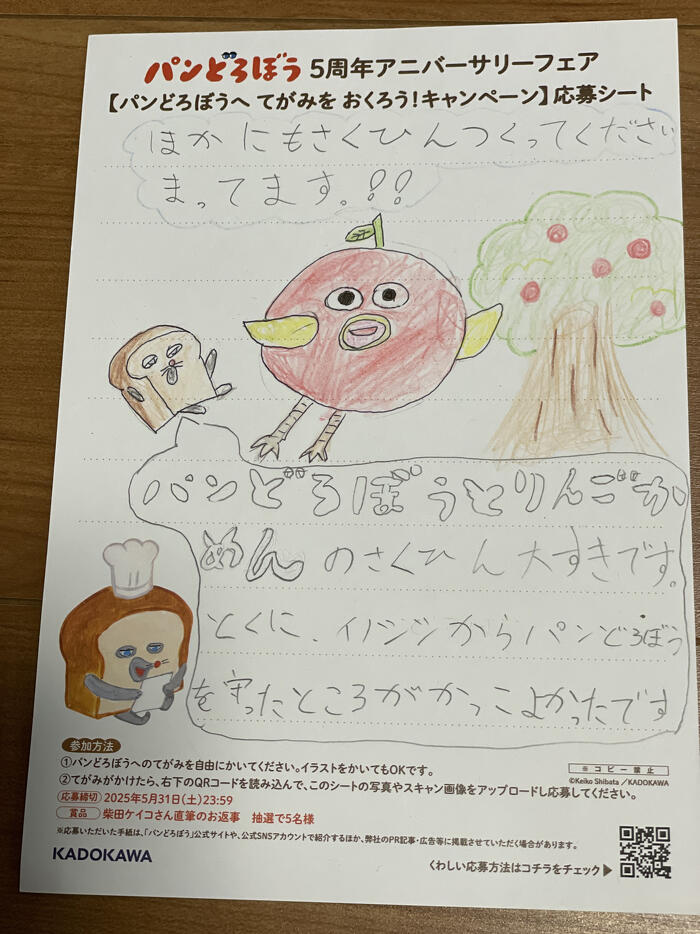 パンどろぼう 5周年アニバーサリーフェア
【パンどろぼうへ てがみを おくろう!キャンペーン】応募シート
ほかにもさくひんつくってください
まってます。!!
パンどろぼうとりんごか
めんのさくひん大すきです。
とくに、イノシシからパンどろぼう
を守ったところがかっこよかったです
参加方法
①パンどろぼうへのてがみを自由にかいてください。イラストをかいてもOKです。
②てがみがかけたら、右下のQRコードを読み込んで、このシートの写真やスキャン画像をアップロードし応募してください。
※コピー禁止
©Keiko Shibata／KADOKAWA
応募締切 2025年5月31日(土)23:59
賞品 柴田ケイコさん直筆のお返事 抽選で5名様
※応募いただいた手紙は、「パンどろぼう」公式サイトや、公式SNSアカウントで紹介するほか、弊社のPR記事・広告等に掲載させていただく場合があります。
KADOKAWA
くわしい応募方法はコチラをチェック▶